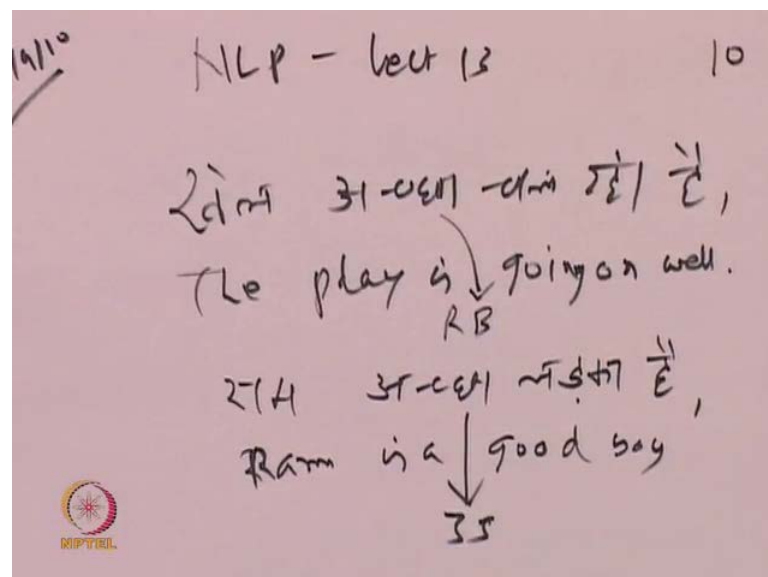 NLP - Lect 13 10
खेल अच्छा चल रहा है,
The play is going on well.
RB
राम अच्छा लड़का है,
Ram is a good boy
JJ
NPTEL